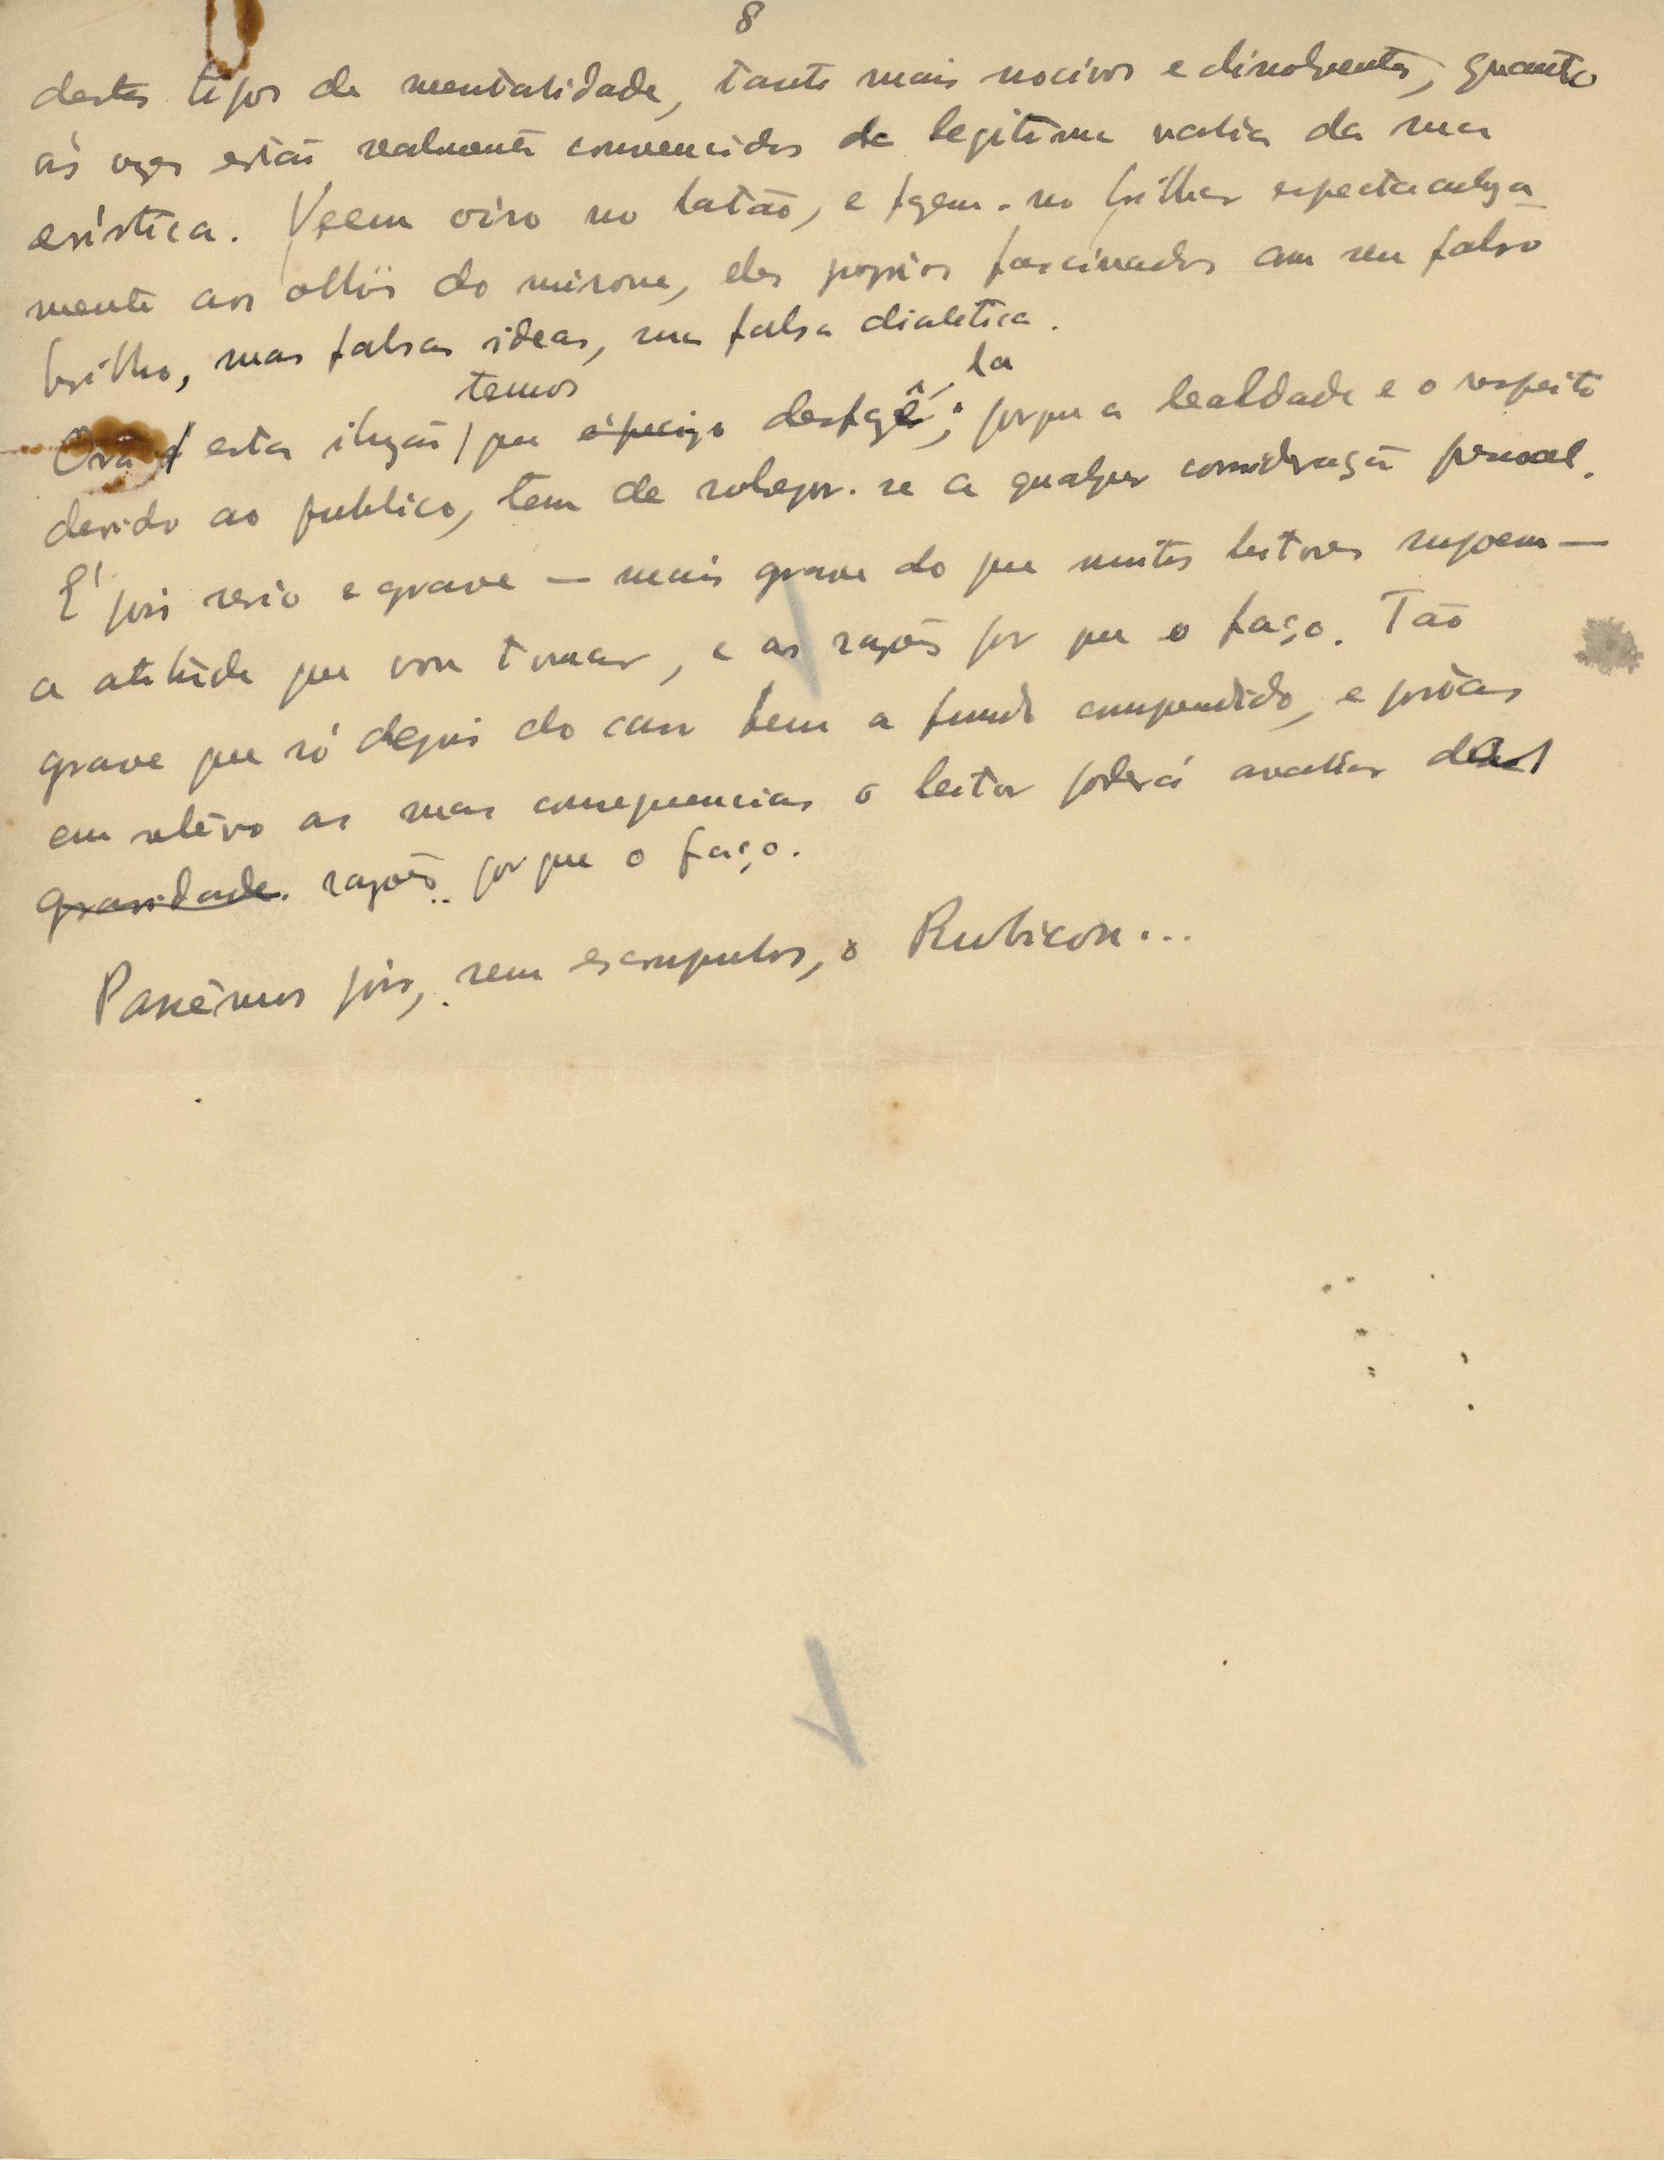 8
destes tipos de mentalidade, tanto mais nocivos e dissolventes, quanto
ás vezes estão realmente convencidos da legitima valia da sua
erística. Vêem oiro no latão, e fazem-no brilhar espectaculosa
mente aos olhos do mirone, eles proprios fascinados em seu falso
brilho, suas falsas ideas, sua falsa dialetica.
temos la
Ora esta ilusão, que é preciso desfazê; porque a lealdade e o respeito
devido ao publico, tem de sobrepor-se a qualquer consideração pessoal.
É pois serio e grave — mais grave do que muitos leitores supoem —
a atitude que vou tomar, e as razões por que o faço. Tão
grave que só depois do caso bem a fundo compendido, e postas
em relêvo as suas consequencias o leitor poderá avaliar das
gravidade. razões porque o faço.
Passêmos pois, sem escrupulos, o Rubicon...